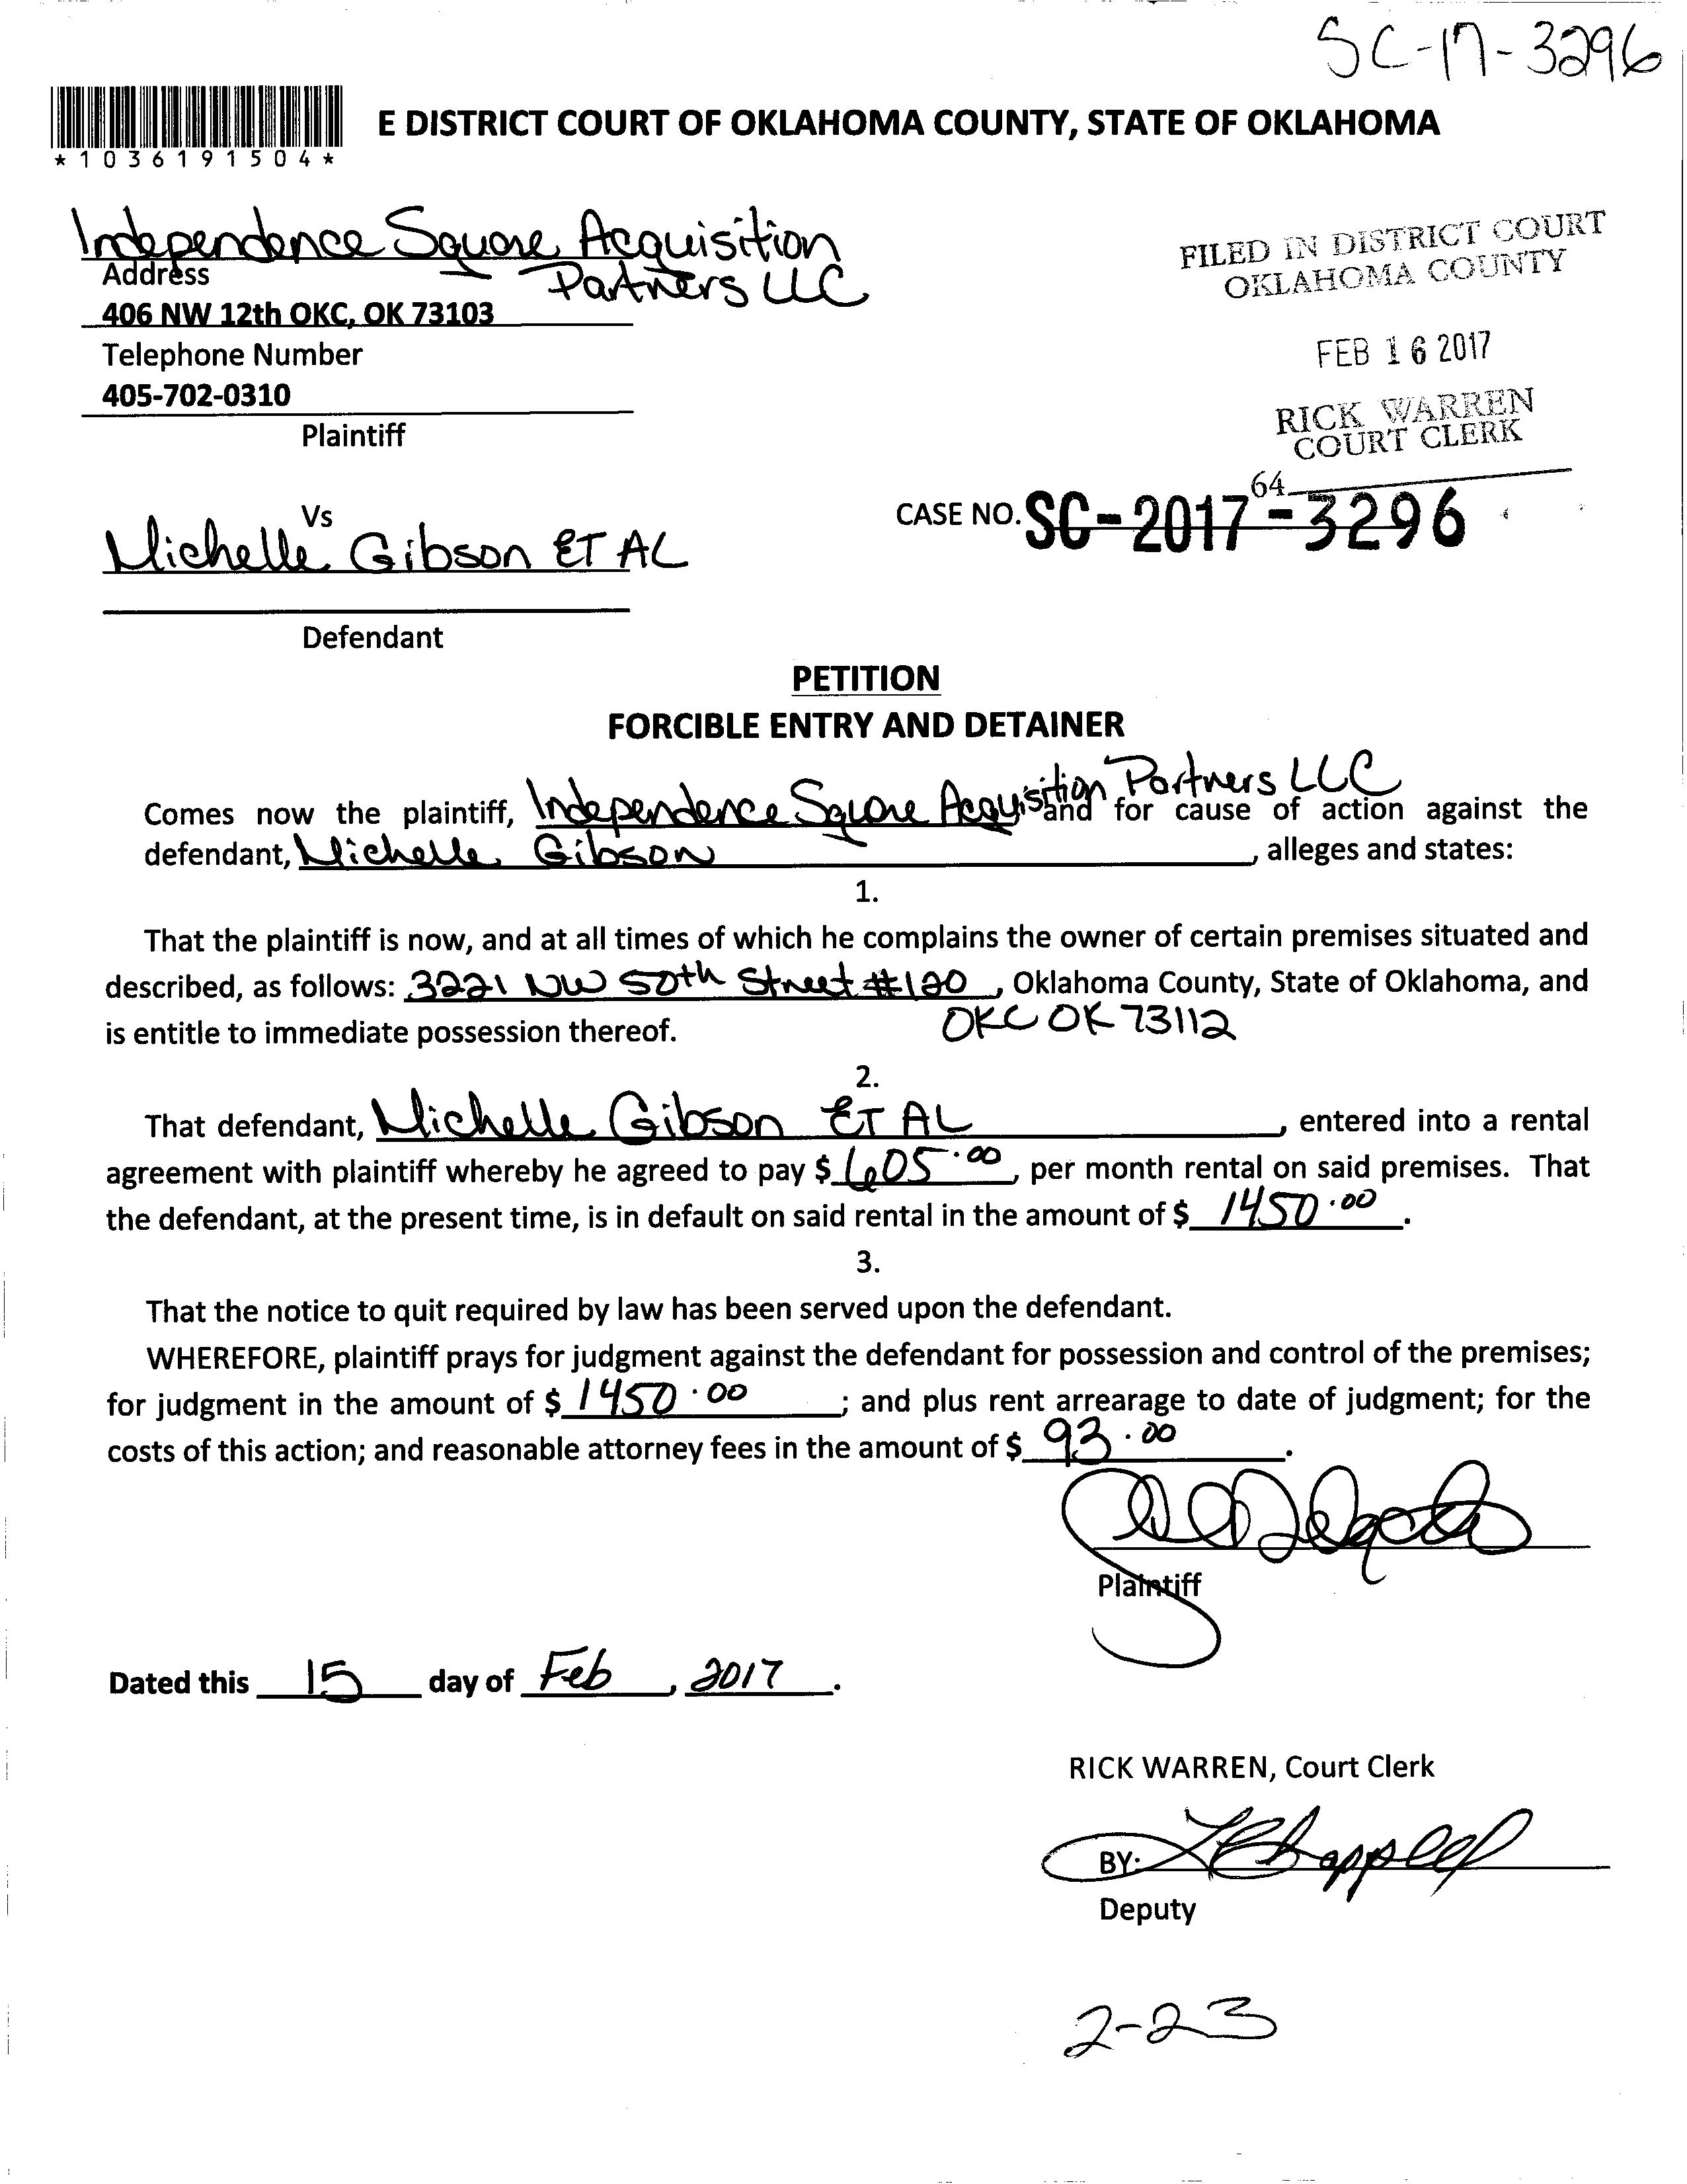 SC-17-3296
E DISTRICT COURT OF OKLAHOMA COUNTY, STATE OF OKLAHOMA
*1036191504*
Independence Square Acquisition
Partners LLC
Address
406 NW 12th OKC, OK 73103
Telephone Number
405-702-0310
Plaintiff
FILED IN DISTRICT COURT
OKLAHOMA COUNTY
FEB 16 2017
RICK WARREN
COURT CLERK
64
Vs
Michelle Gibson ET AL
CASE NO. SC-2017-3296
Defendant
PETITION
FORCIBLE ENTRY AND DETAINER
Comes now the plaintiff, Independence Square Acquisition Partners LLC and for cause of action against the
defendant, Michelle Gibson, alleges and states:
1.
That the plaintiff is now, and at all times of which he complains the owner of certain premises situated and
described, as follows: 3221 NW 50th Street #120, Oklahoma County, State of Oklahoma, and
is entitle to immediate possession thereof. OKC OK 73112
2.
That defendant, Michelle Gibson ET AL, entered into a rental
agreement with plaintiff whereby he agreed to pay $ 605.00, per month rental on said premises. That
the defendant, at the present time, is in default on said rental in the amount of $ 1450.00.
3.
That the notice to quit required by law has been served upon the defendant.
WHEREFORE, plaintiff prays for judgment against the defendant for possession and control of the premises;
for judgment in the amount of $ 1450.00; and plus rent arrearage to date of judgment; for the
costs of this action; and reasonable attorney fees in the amount of $ 93.00.
Plaintiff
Dated this 15 day of Feb, 2017.
RICK WARREN, Court Clerk
BY:
Deputy
2-23